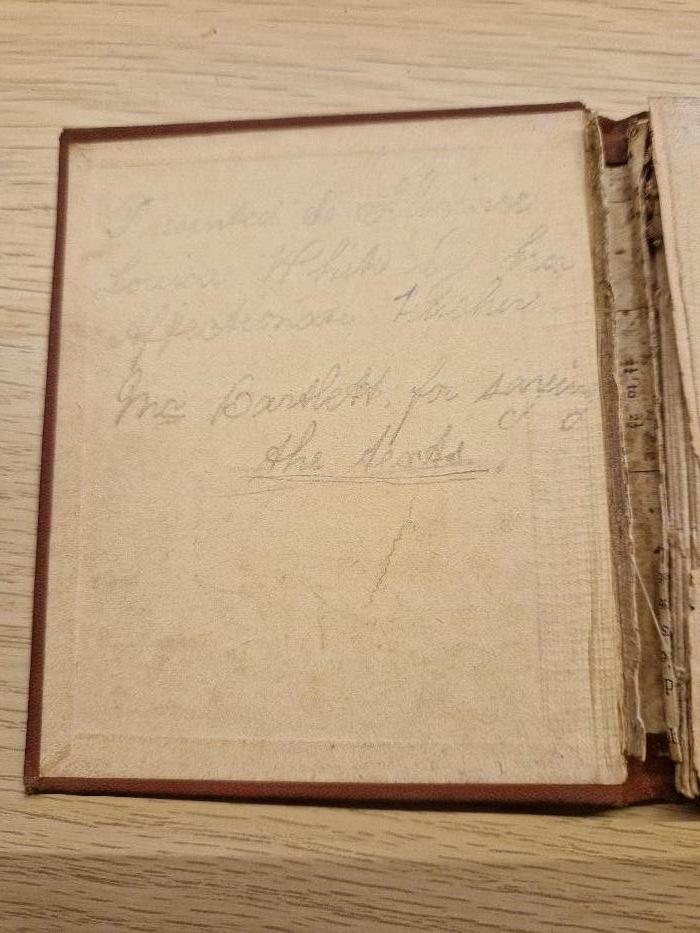 Presented to Florence
Louisa White by her
Affectionate Teacher
Mr Bartlett, for saying
the texts.